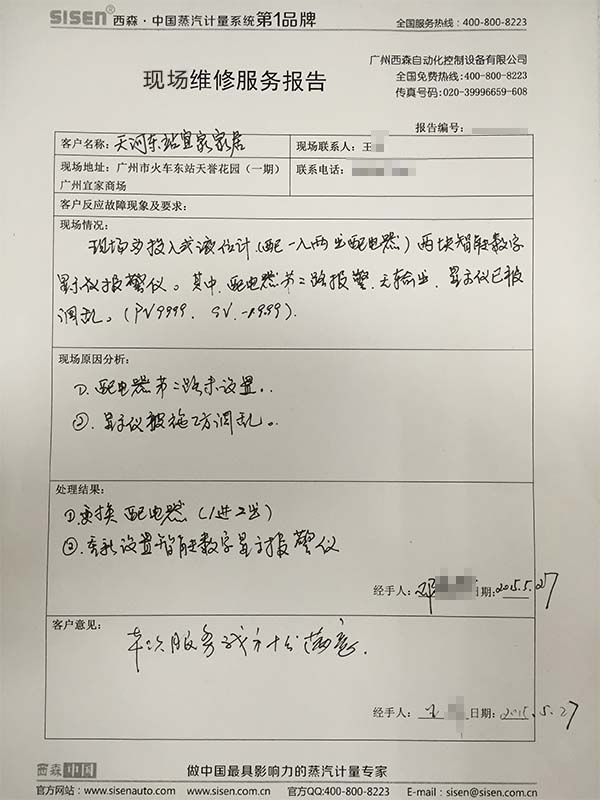 SISEN® 西森·中国蒸汽计量系统第1品牌 全国服务热线:400-800-8223
广州西森自动化控制设备有限公司
现场维修服务报告
全国免费热线:400-800-8223
传真号码:020-39996659-608
报告编号:
客户名称: 天河东站宜家家居 现场联系人: 王
现场地址: 广州市火车东站天誉花园(一期) 联系电话:
广州宜家商场
客户反应故障现象及要求:
现场情况:
现场为投入式液位计(配一入两出配电器)两块智能数字
显示仪报警仪。其中,配电器第二路报警,无输出,显示仪已被
调乱。(PV 9999. SV. -1999).
现场原因分析:
①.配电器第二路未设置..
②.显示仪被施工方调乱。
处理结果:
①更换配电器(1进2出)
②重新设置智能数字显示报警仪
经手人: 邓 日期: 2015.5.27
客户意见:
本次服务我方十分满意.
经手人: 王 日期: 2015.5.27
西森中国 做中国最具影响力的蒸汽计量专家
官方网站:www.sisenauto.com / www.sisen.com.cn 官方QQ:400-800-8223 E-mail:sisen@sisen.com.cn